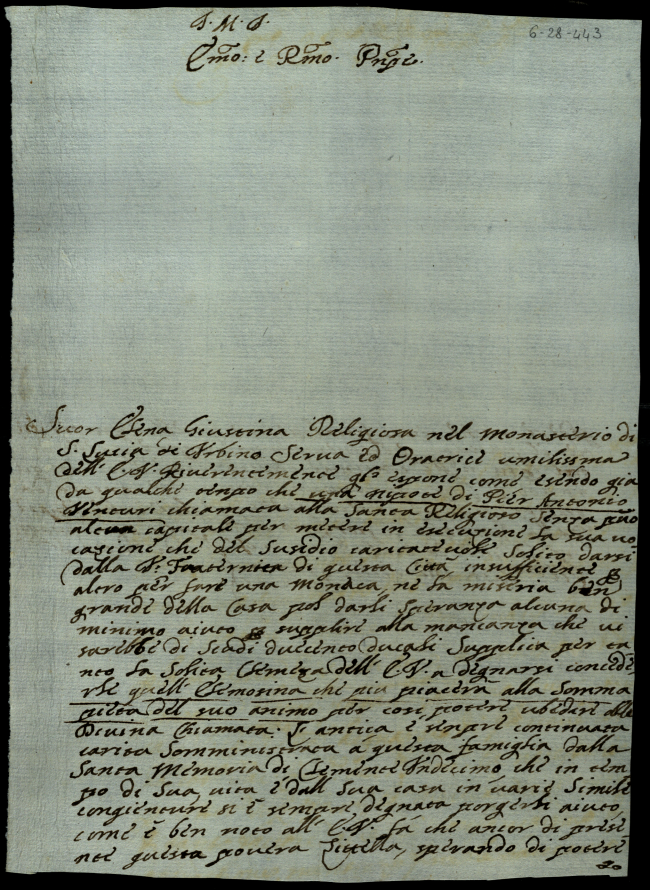 J. M. J.
6-28-443
Emo: e Rmo. Pnpe.
Suor Elena Giustina Religiosa nel Monasterio di
S. Lucia di Urbino Serva ed Oratrice umilissma
dell' E. V. Riverentemente gli espone come esendo gia
da qualche tenpo che una nipote di Pier Antonio
Venturi chiamata alla Santa Religione Senza puo
alcun capitale per metere in esecuzione la sua vo
cazione che del Susidio caritatevole Solito darsi
dalla V. Fraternita di questa Citta insufficiente
altro per fare una Monaca, ne la miseria ben
grande della Casa pol darli Speranza alcuna di
minimo aiuto p supplire alla mancanza che vi
sarebbe di Scudi duecento ducali Supplica per ta
nto la Solita Clemeza dell' E. V. a degnarsi concede
rle quell' Elemosina che piu piacera alla Somma
pieta del suo animo per cosi potere ubedire alla
Divina Chiamata: L' antica e senpre continuata
carita Somministrata a questa famiglia dalla
Santa Memoria di Clemente Undecimo che in tem
po di Sua vita e dall Sua casa in varie Simile
congienture si è sempre degnata porgersi aiuto,
come è ben noto all' E. V. fá che ancor di prese
nte questa povera Zittella, sperando di potere